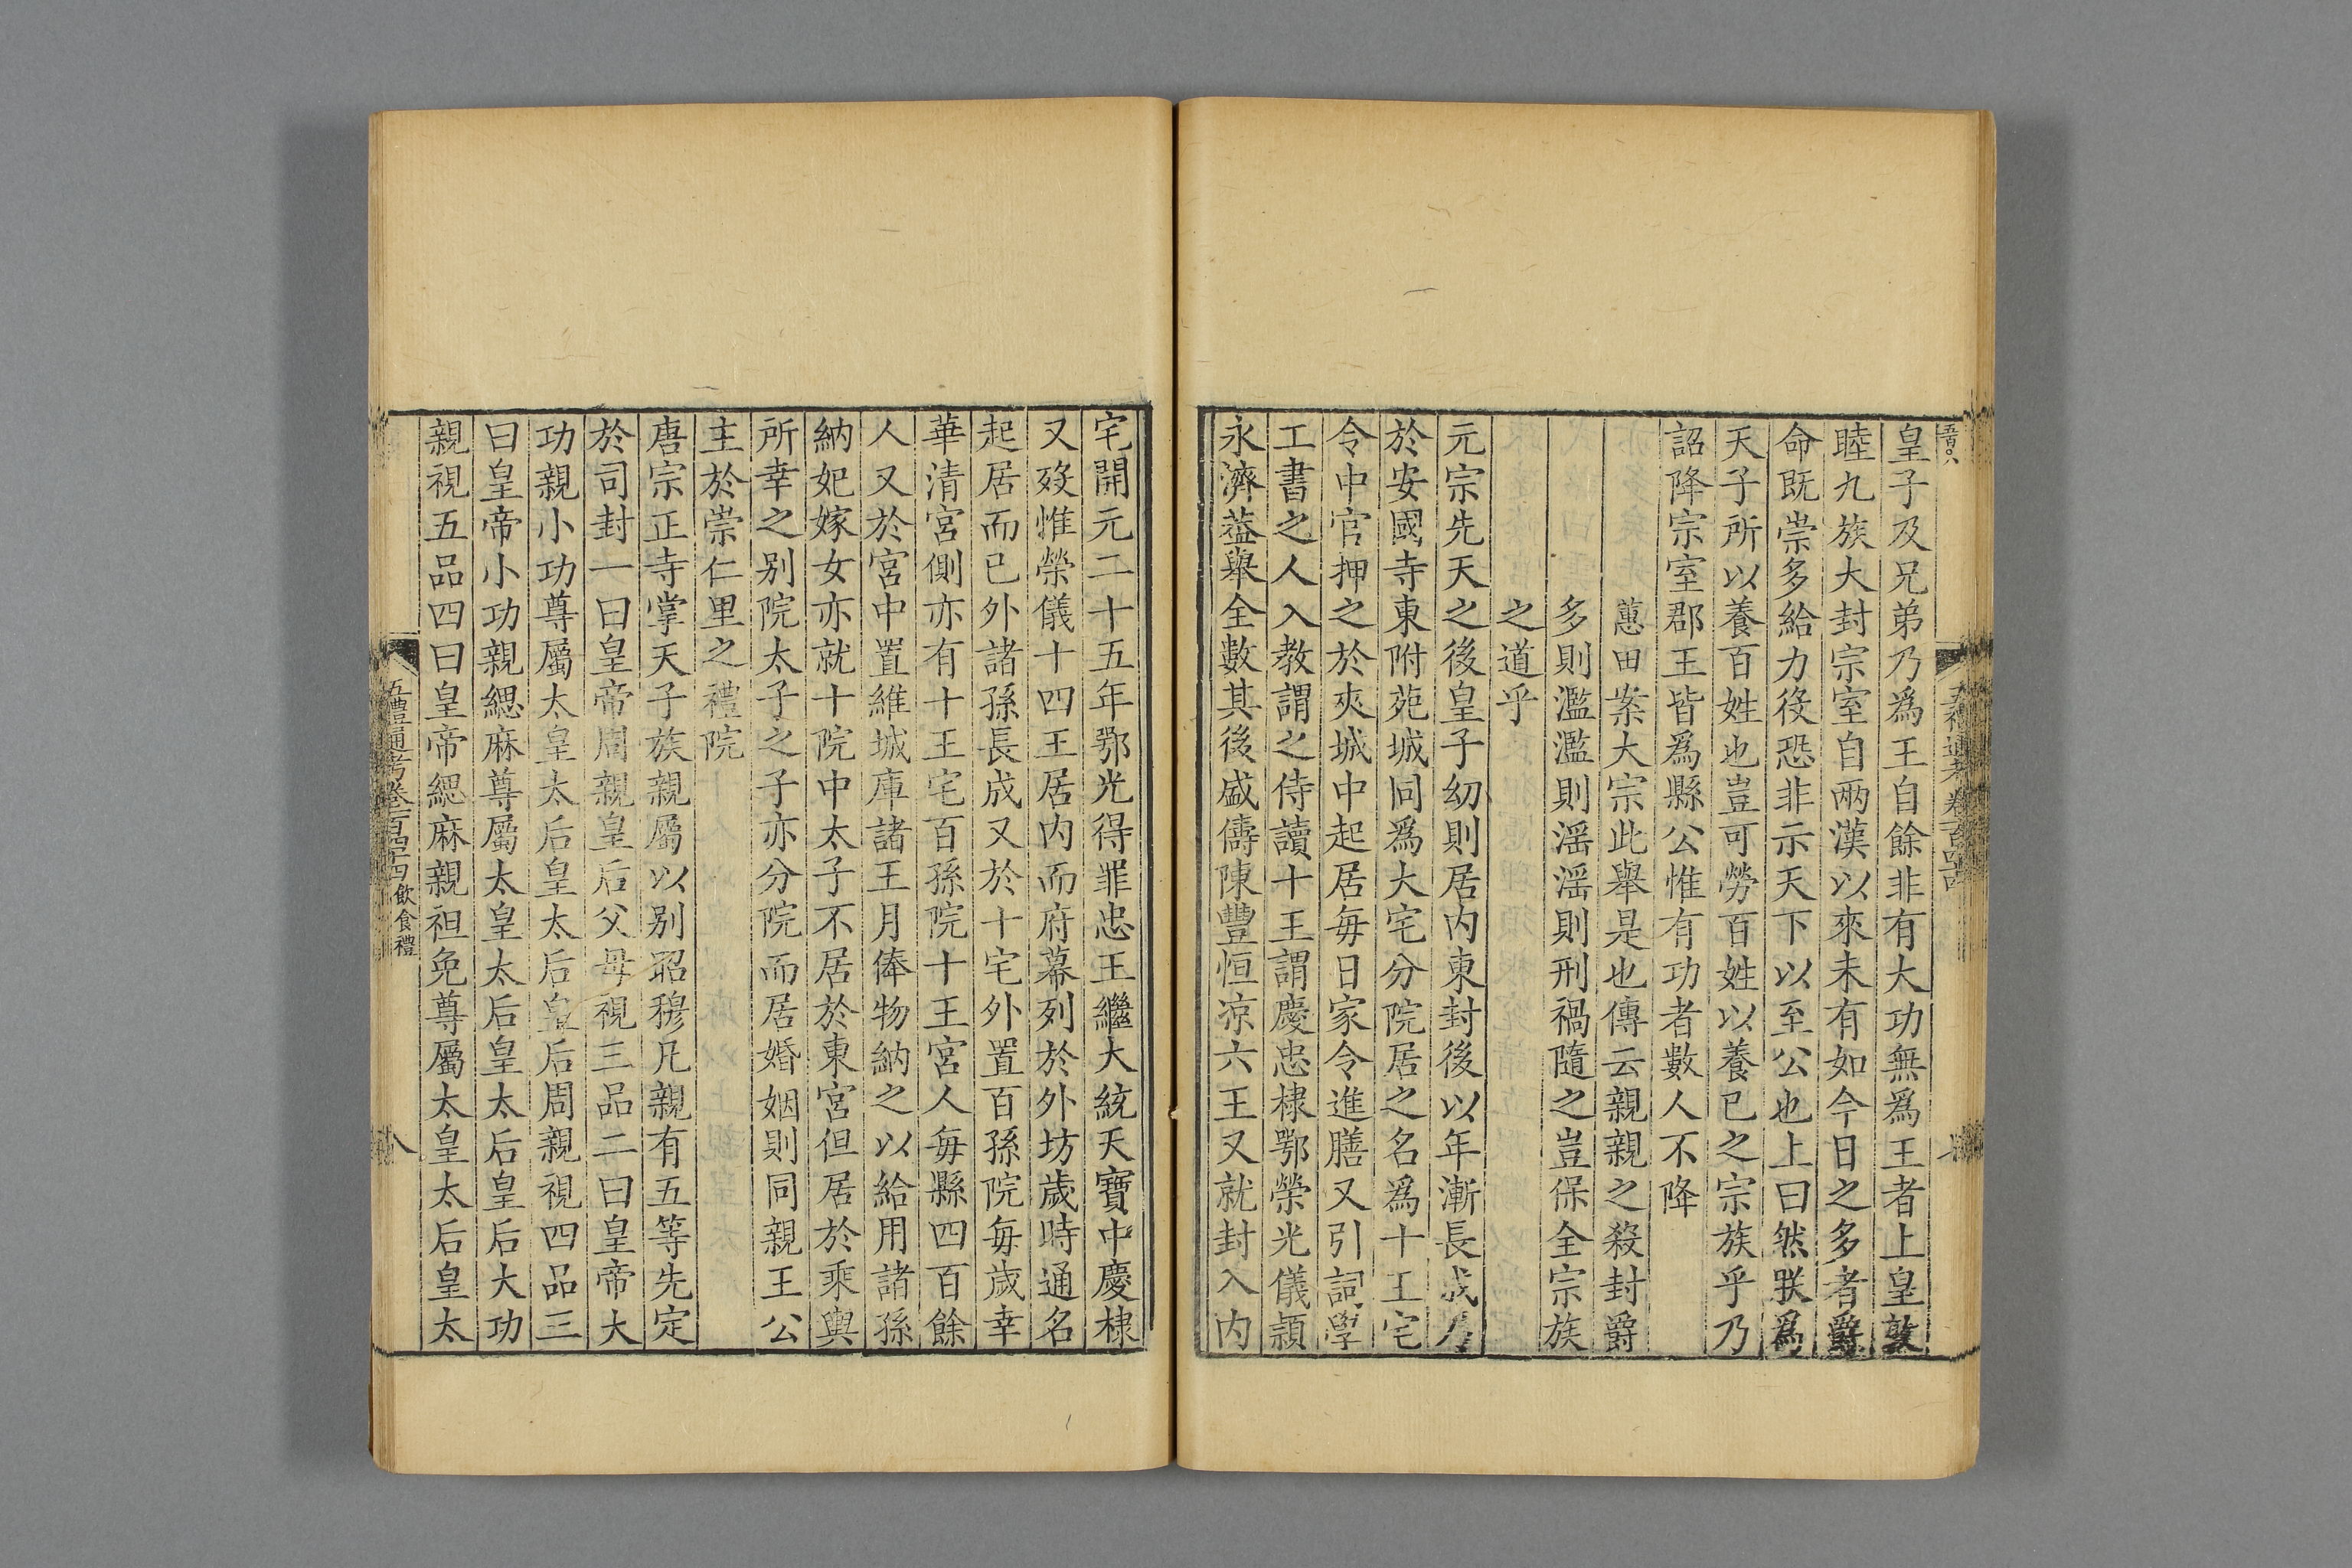 五百八
皇子及兄弟乃爲王自餘非有大功無爲王者上皇敦
睦九族大封宗室自兩漢以來未有如今日之多者爵
命既崇多給力役恐非示天下以至公也上曰然朕爲
天子所以養百姓也豈可勞百姓以養已之宗族乎乃
詔降宗室郡王皆爲縣公惟有功者數人不降
蕙田案大宗此舉是也傳云親親之殺封爵
多則濫濫則滛滛則刑禍隨之豈保全宗族
之道乎
元宗先天之後皇子幼則居内東封後以年漸長成乃
於安國寺東附苑城同爲大宅分院居之名爲十王宅
令中官押之於夾城中起居毎日家令進膳又引詞學
工書之人入教謂之侍讀十王謂慶忠棣鄂榮光儀頴
永濟葢舉全數其後盛儔陳豐恒凉六王又就封入内
宅開元二十五年鄂光得罪忠王繼大統天寶中慶棣
又歿惟榮儀十四王居内而府幕列於外坊歲時通名
起居而已外諸孫長成又於十宅外置百孫院毎歲幸
華清宮側亦有十王宅百孫院十王宮人毎縣四百餘
人又於宮中置維城庫諸王月俸物納之以給用諸孫
納妃嫁女亦就十院中太子不居於東宮但居於乘輿
所幸之别院太子之子亦分院而居婚姻則同親王公
主於崇仁里之禮院
唐宗正寺掌天子族親屬以别昭穆凡親有五等先定
於司封一曰皇帝周親皇后父母視三品二曰皇帝大
功親小功尊屬太皇太后皇太后皇后周親視四品三
曰皇帝小功親緦麻尊屬太皇太后皇太后皇后大功
親視五品四曰皇帝緦麻親袒免尊屬太皇太后皇太
五禮通考卷一百四十四 飲食禮
八